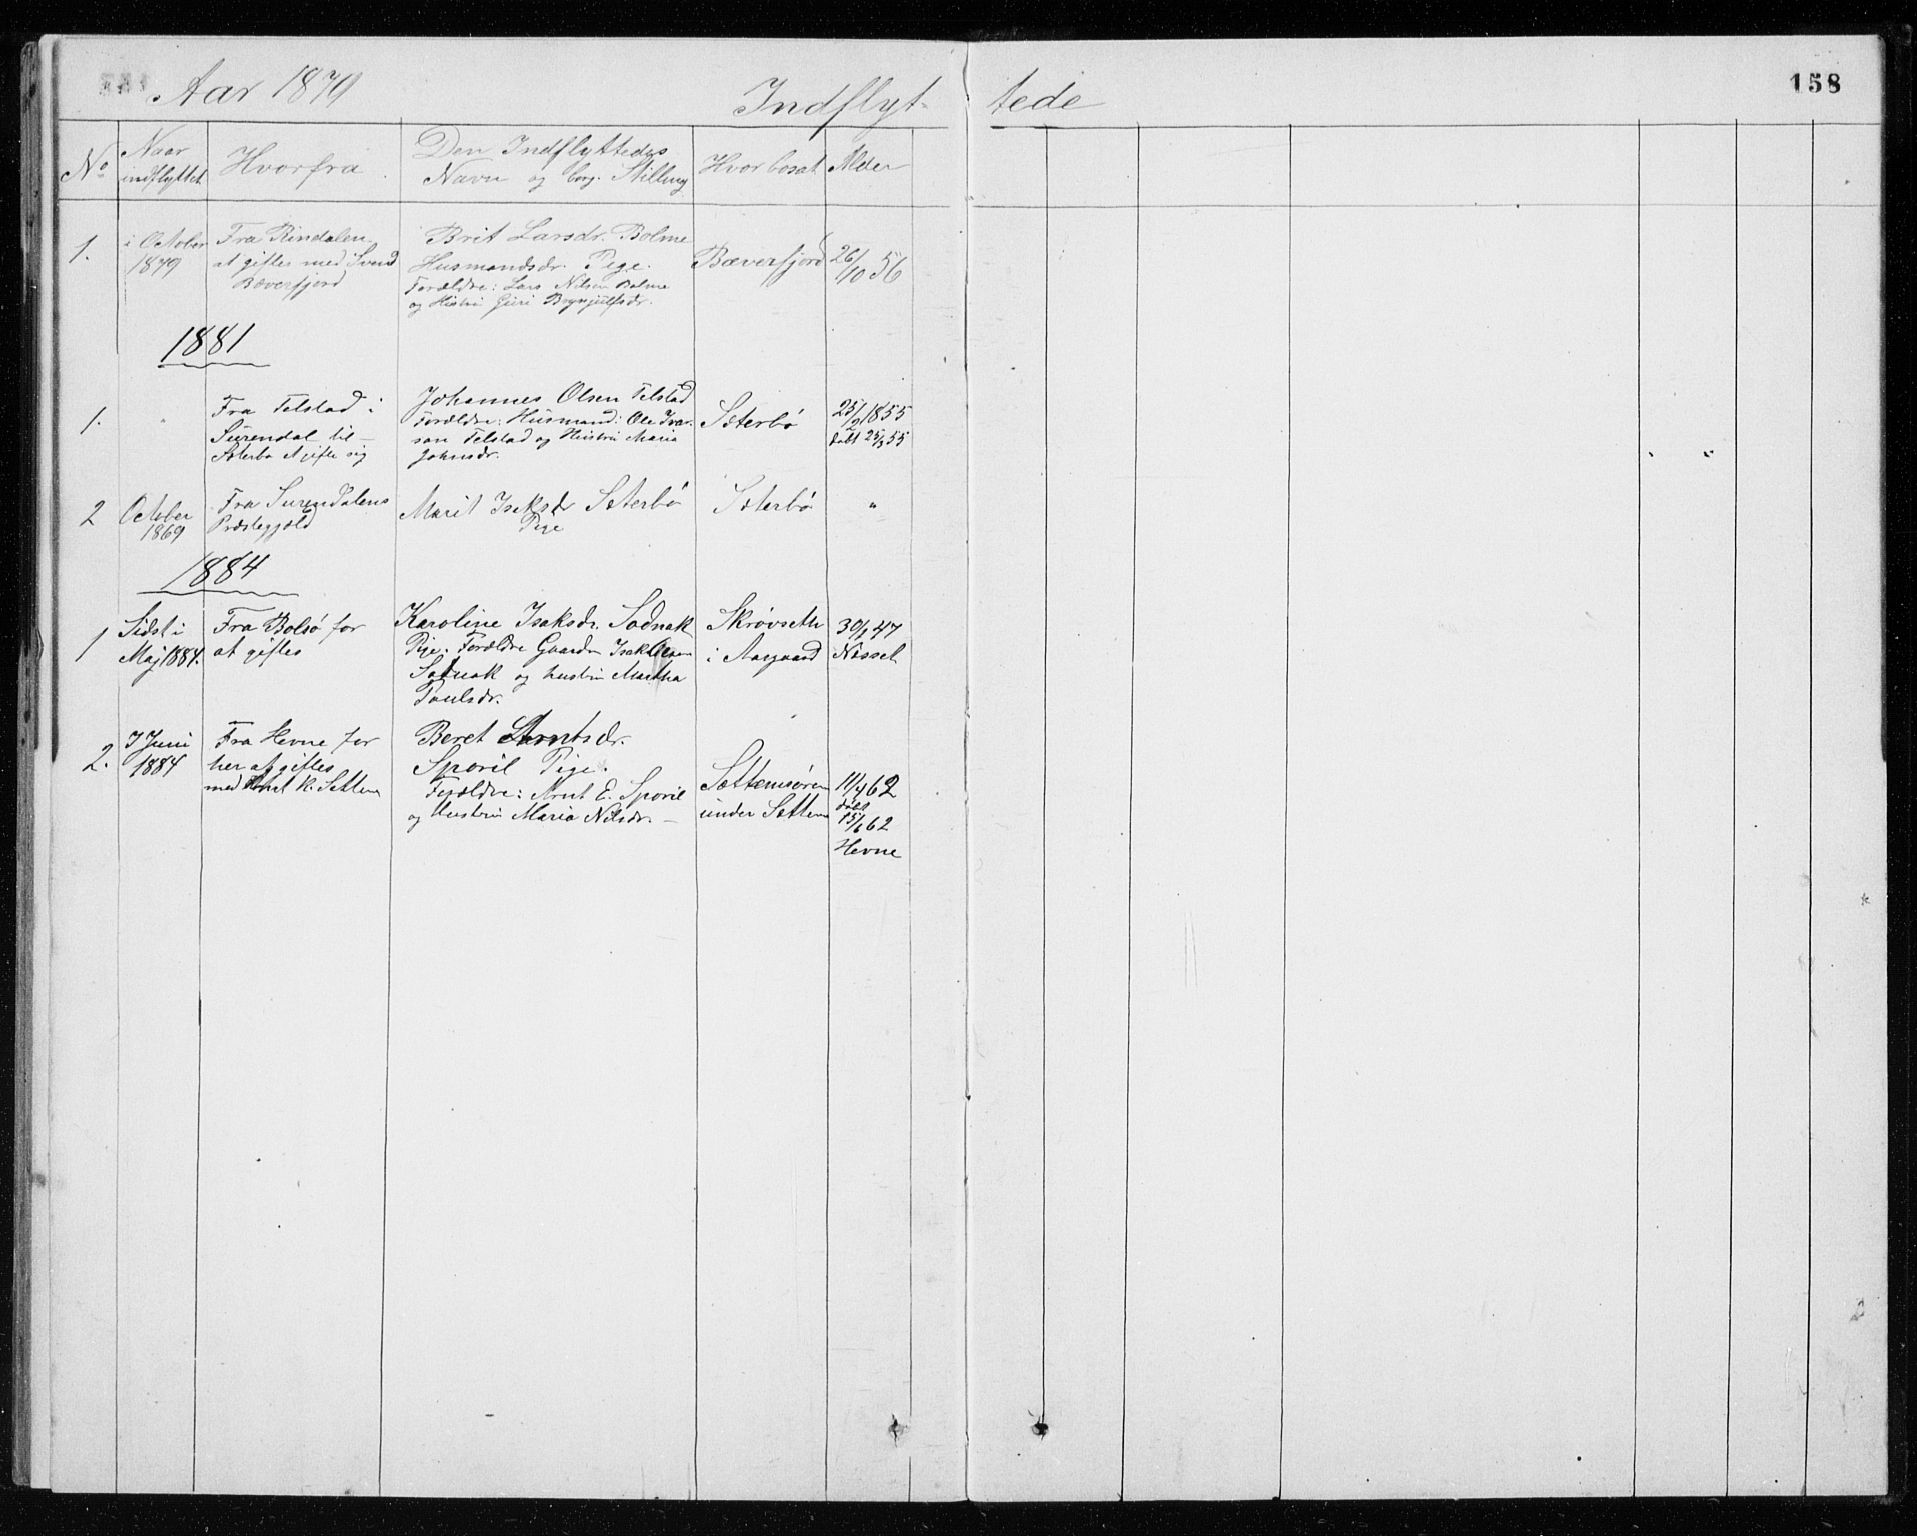 Aar 1879
Indflyt- tede
158
No
Naar indflyttet
Hvorfra
Den Indflyttedes Navn og borg. Stilling
Hvor bosat
Alder
1.
i October
1879
Fra Rindalen
at giftes med Svend
Bæverfjord
Brit Larsdr. Bolme
Husmandsdr. Pige.
Forældre: Lars Nilsen Bolme
og Hustru Guri Brynjulfsdr.
Bæverfjord
26/10 56
1881
1.
"
Fra Telstad i
Surendal til
Sæterbø at gifte sig
Johannes Olsen Telstad
Forældre: Husmand: Ole Ivar-
sen Telstad og Hustru Maria
Johnsdr.
Sæterbø
25/2 1855
døbt 25/3 55
2
October
1869
Fra Surendalens
Præstegjeld
Marit Isaksdr Sæterbø
Pige
Sæterbø
"
1884
1
Sidst i
Maj 1884.
Fra Bolsø for
at giftes
Karoline Isaksdr. Sødnak
Pige. Forældre Gaardm Isak Olsen
Sødnak og hustru Martha
Poulsdr.
Skrøvseth
i Aasgaard
30/1 47
Nesset
2.
I Juni
1884
Fra Hevne for
her at giftes
med K. Settem
Beret Arntsdr.
Sporil Pige.
Forældre: Arnt E. Sporil
og Hustru Maria Nilsdr.
Settemsøren
under Settem
11/4 62
døbt
15/6 62
Hevne